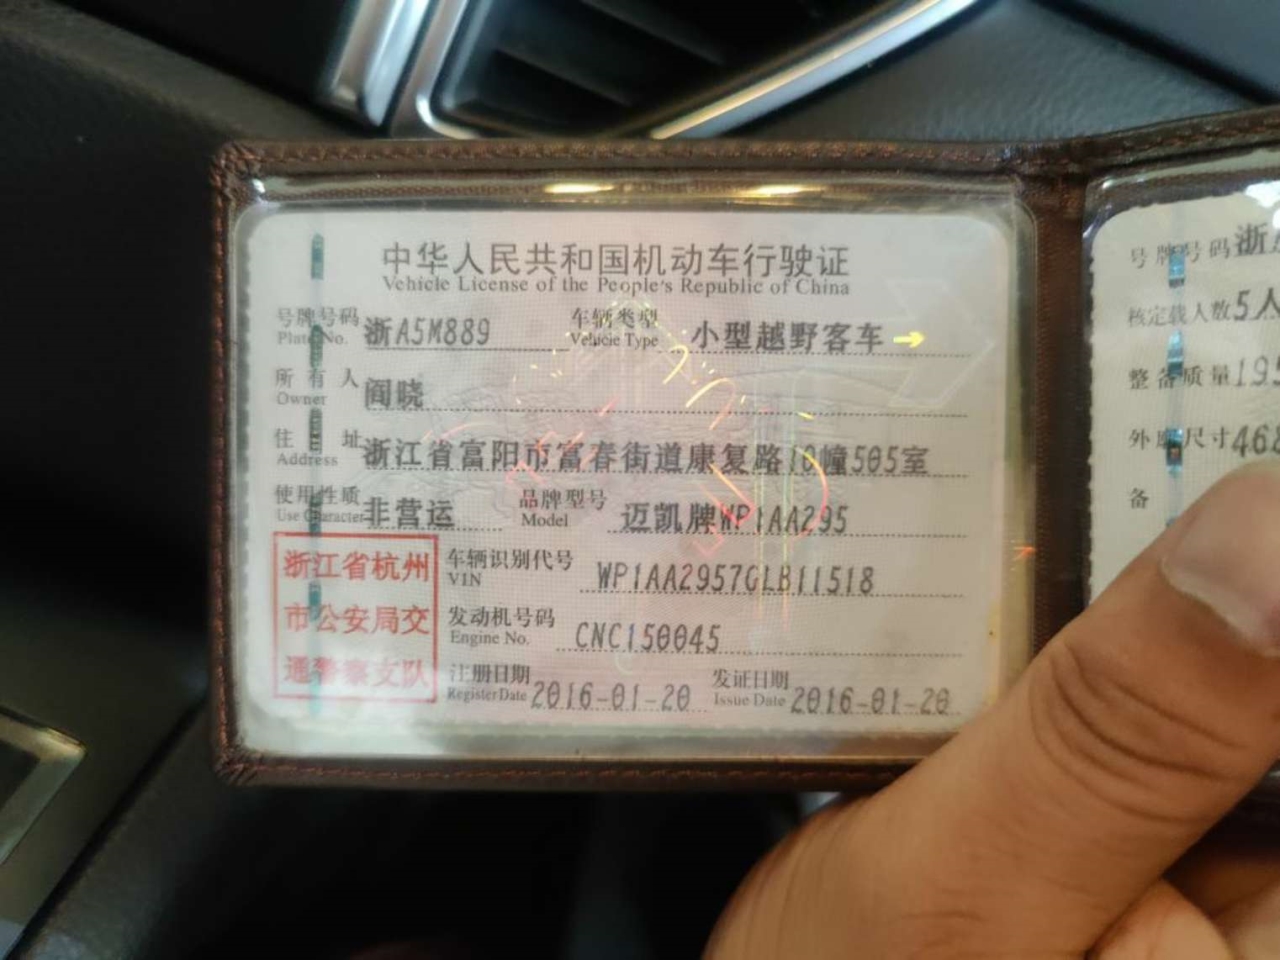 中华人民共和国机动车行驶证
Vehicle License of the People's Republic of China
号牌号码 浙A5M889 车辆类型 小型越野客车
Plate No. Vehicle Type
所有人 阎晓
Owner
住址 浙江省富阳市富春街道康复路10幢505室
Address
使用性质 非营运 品牌型号 迈凯牌WP1AA295
Use Character Model
浙江省杭州
市公安局交
通警察支队
车辆识别代号 WP1AA2957GLB11518
VIN
发动机号码 CNC150045
Engine No.
注册日期 2016-01-20 发证日期 2016-01-20
Register Date Issue Date
号牌号码 浙
核定载人数 5人
整备质量 195
外廓尺寸 468
备